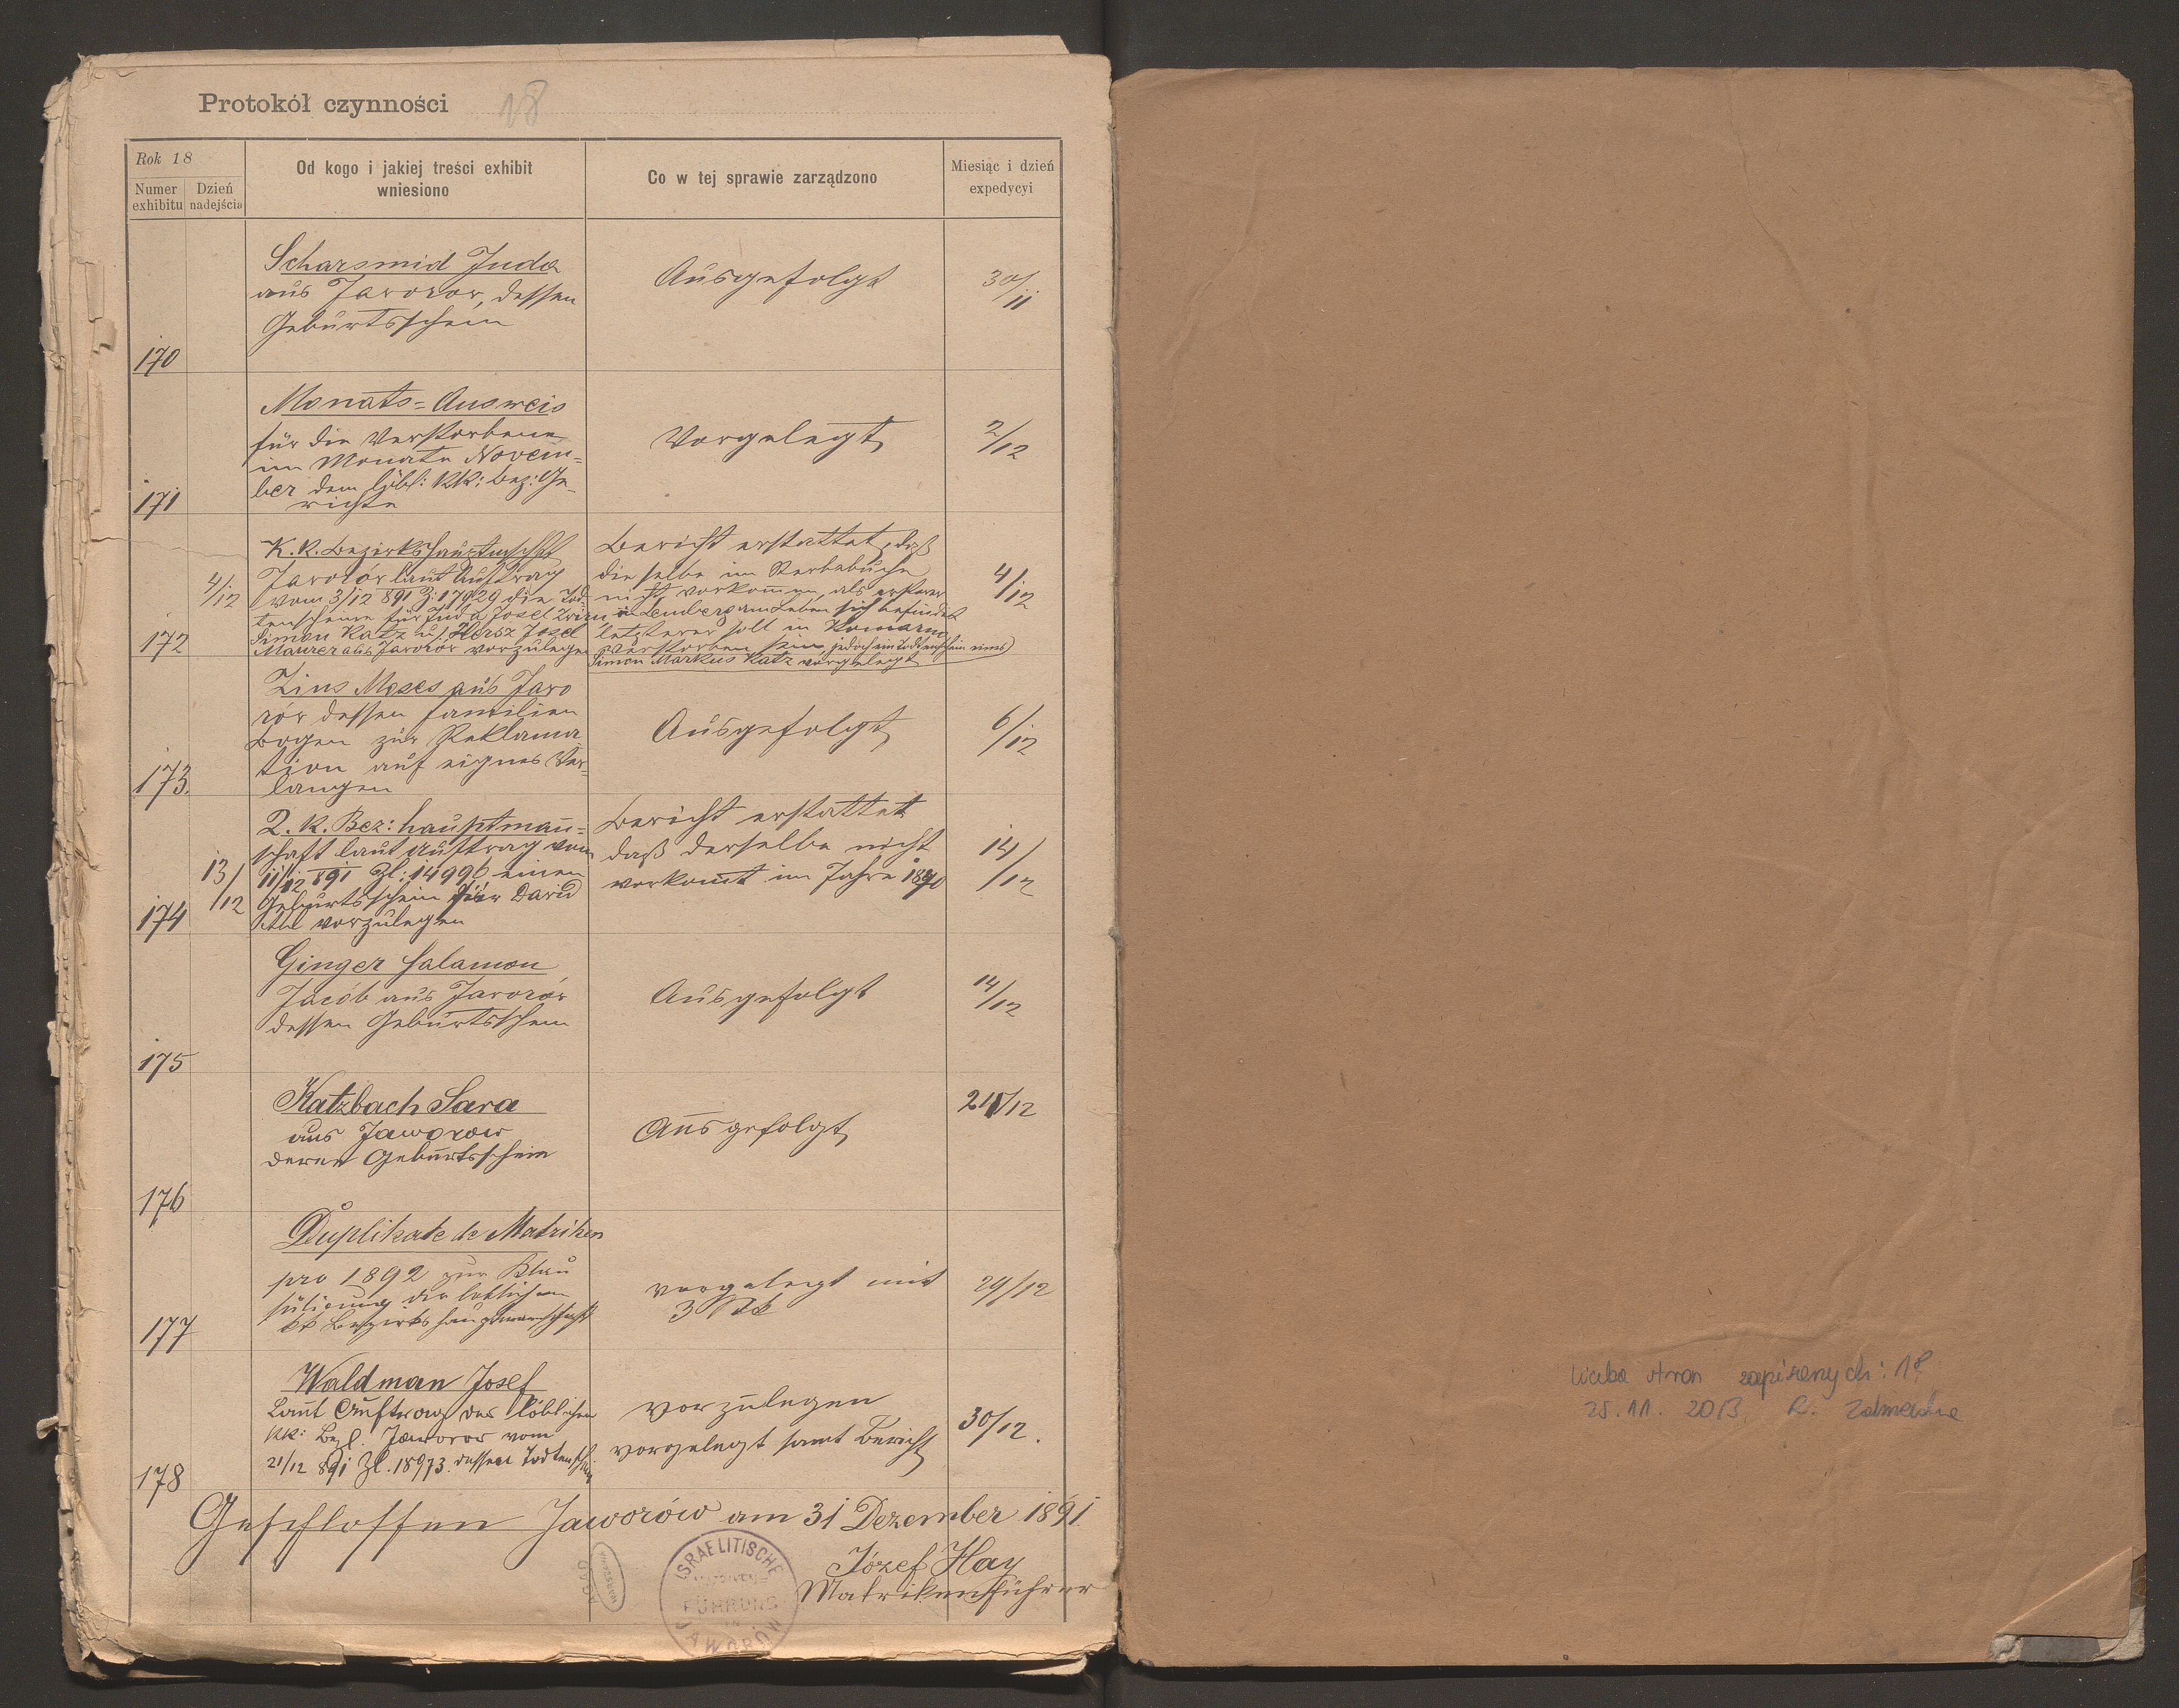 Protokół czynności
18
Rok 18
Numer exhibitu
Dzień nadejścia
Od kogo i jakiej treści exhibit wniesiono
Co w tej sprawie zarządzono
Miesiąc i dzień expedycyi
170
Scharsmid Juda
aus Jaworow, dessen
Geburtsschein
Ausgefolgt
30/11
171
Monats=Ausweis
für die Verstorbene
im Monate Novem=
ber dem löbl: KK: Bez: Ge-
richte
Vorgelegt
2/12
172
4/12
K. K. Bezirkshauptmschft
Jaworów laut Auftrag
vom 3/12 891 Z: 17929 die Tod-
tenscheine für Juda Josel
Simon Katz u/ Hersz Josel
Maurer aus Jaworow vorzulegen
Bericht erstattet, daß
dieselbe im Sterbebuche
nicht vorkommen, als ersterer
in Lemberg am Leben sich befindet
letzterer soll in Komarno
verstorben sein jedoch ein Todtenschein eines
Simon Markus Katz vorgelegt
4/12
173.
Zins Moses aus Jawo
rów dessen Familien
Bogen zur Reklama
tion auf eignes Ver=
langen
Ausgefolgt
6/12
174
13/12
K. K. Bez: hauptman̄=
schaft laut Auftrag vom
11/12 891 Zl: 14996 einen
Geburtsschein für David
vorzulegen
Bericht erstattet
daß derselbe nicht
vorkom̄t im Jahre 1870
14/12
175
Ginger Salamon
Jacób aus Jaworów
dessen Geburtsschein
Ausgefolgt
14/12
176
Katzbach Sara
aus Jaworow
deren Geburtsschein
Ausgefolgt
21/12
177
Duplikate de Matriken
pro 1892 zur Klau
sulirung der löblichen
kk Bezirkshauptmannschaft
vorgelegt mit
3 Stk
29/12
178
Waldman Josef
Laut Auftrag der löblichen
KK: Jaworow vom
21/12 891 Zl. 18973. dessen Todtenschein
vorzulegen
vorgelegt samt Bericht
30/12.
Geschlossen Jaworów am 31 Dezember 1891
Józef Hay
Matrikenführer
ISRAELITISCHE
MATRIKEN
FÜHRUNG
IN
JAWORÓW
Liczba stron zapisanych: 18
25. 11. 2013.